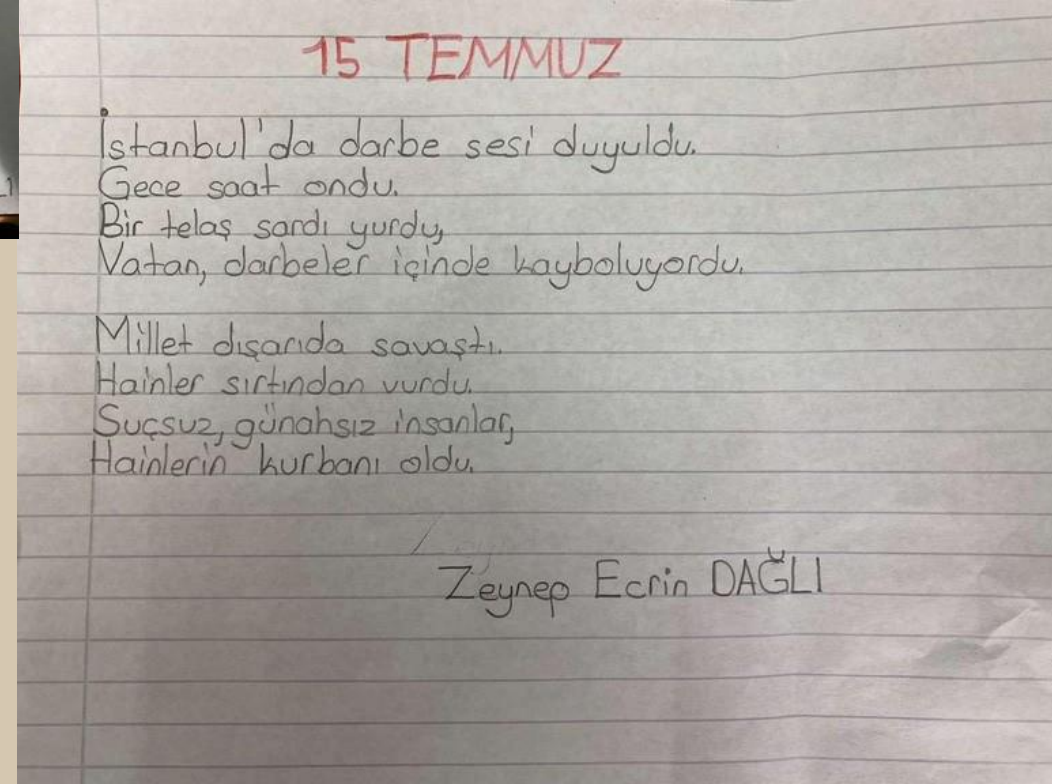 15 TEMMUZ
İstanbul'da darbe sesi duyuldu.
Gece saat ondu.
Bir telaş sardı yurdu,
Vatan, darbeler içinde kayboluyordu.
Millet dışarıda savaştı.
Hainler sırtından vurdu.
Suçsuz, günahsız insanlar,
Hainlerin kurbanı oldu.
Zeynep Ecrin DAĞLI